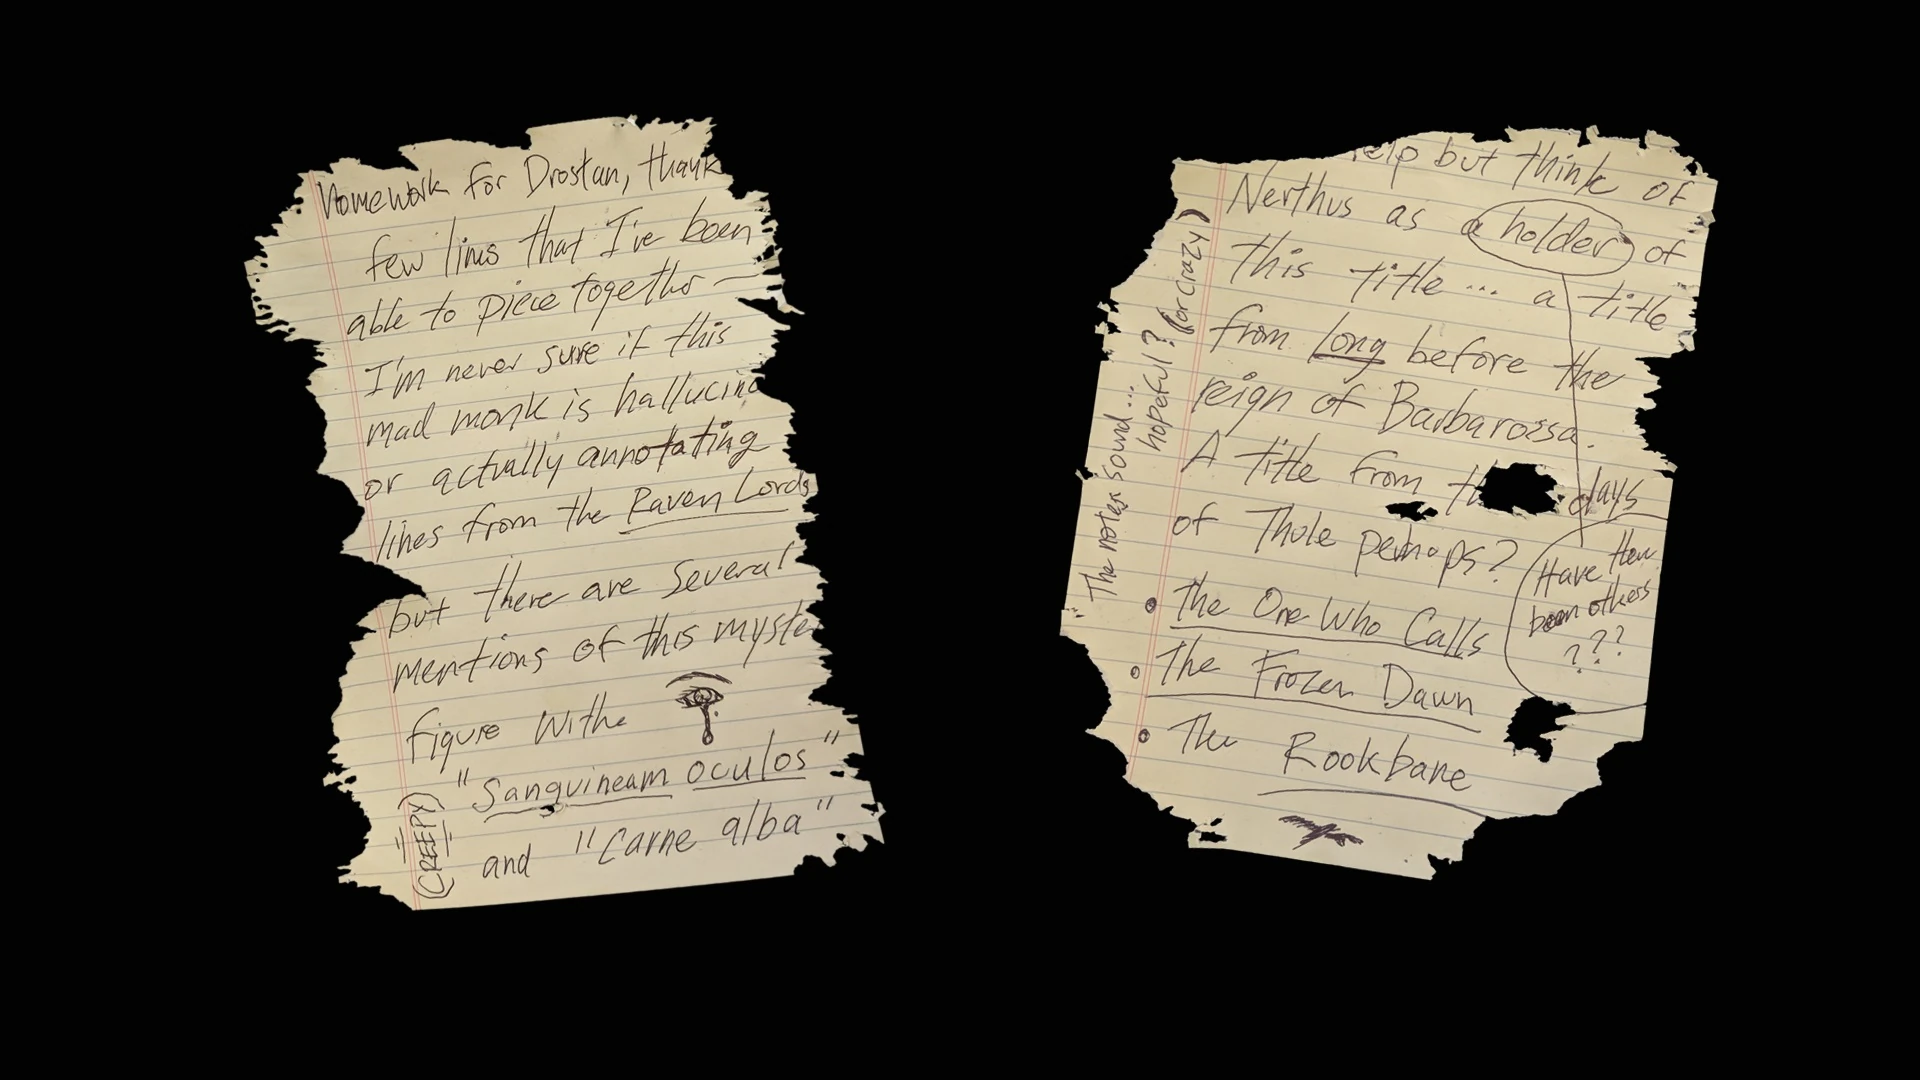 Homework for Drostan, thank
few lines that I've been
able to piece together —
I'm never sure if this
mad monk is hallucina
or actually annotating
lines from the Raven Lords
but there are several
mentions of this myste
figure withe
"Sanguineam oculos"
and "Carne alba"
(CREEPY)
help but think of
Nerthus as a holder of
this title... a title
from long before the
reign of Barbarossa.
A title from th days
of Thole perhaps?
• The One Who Calls
• The Frozen Dawn
• The Rookbane
Have ther
been others
???
The notes sound...
hopeful? (or crazy)